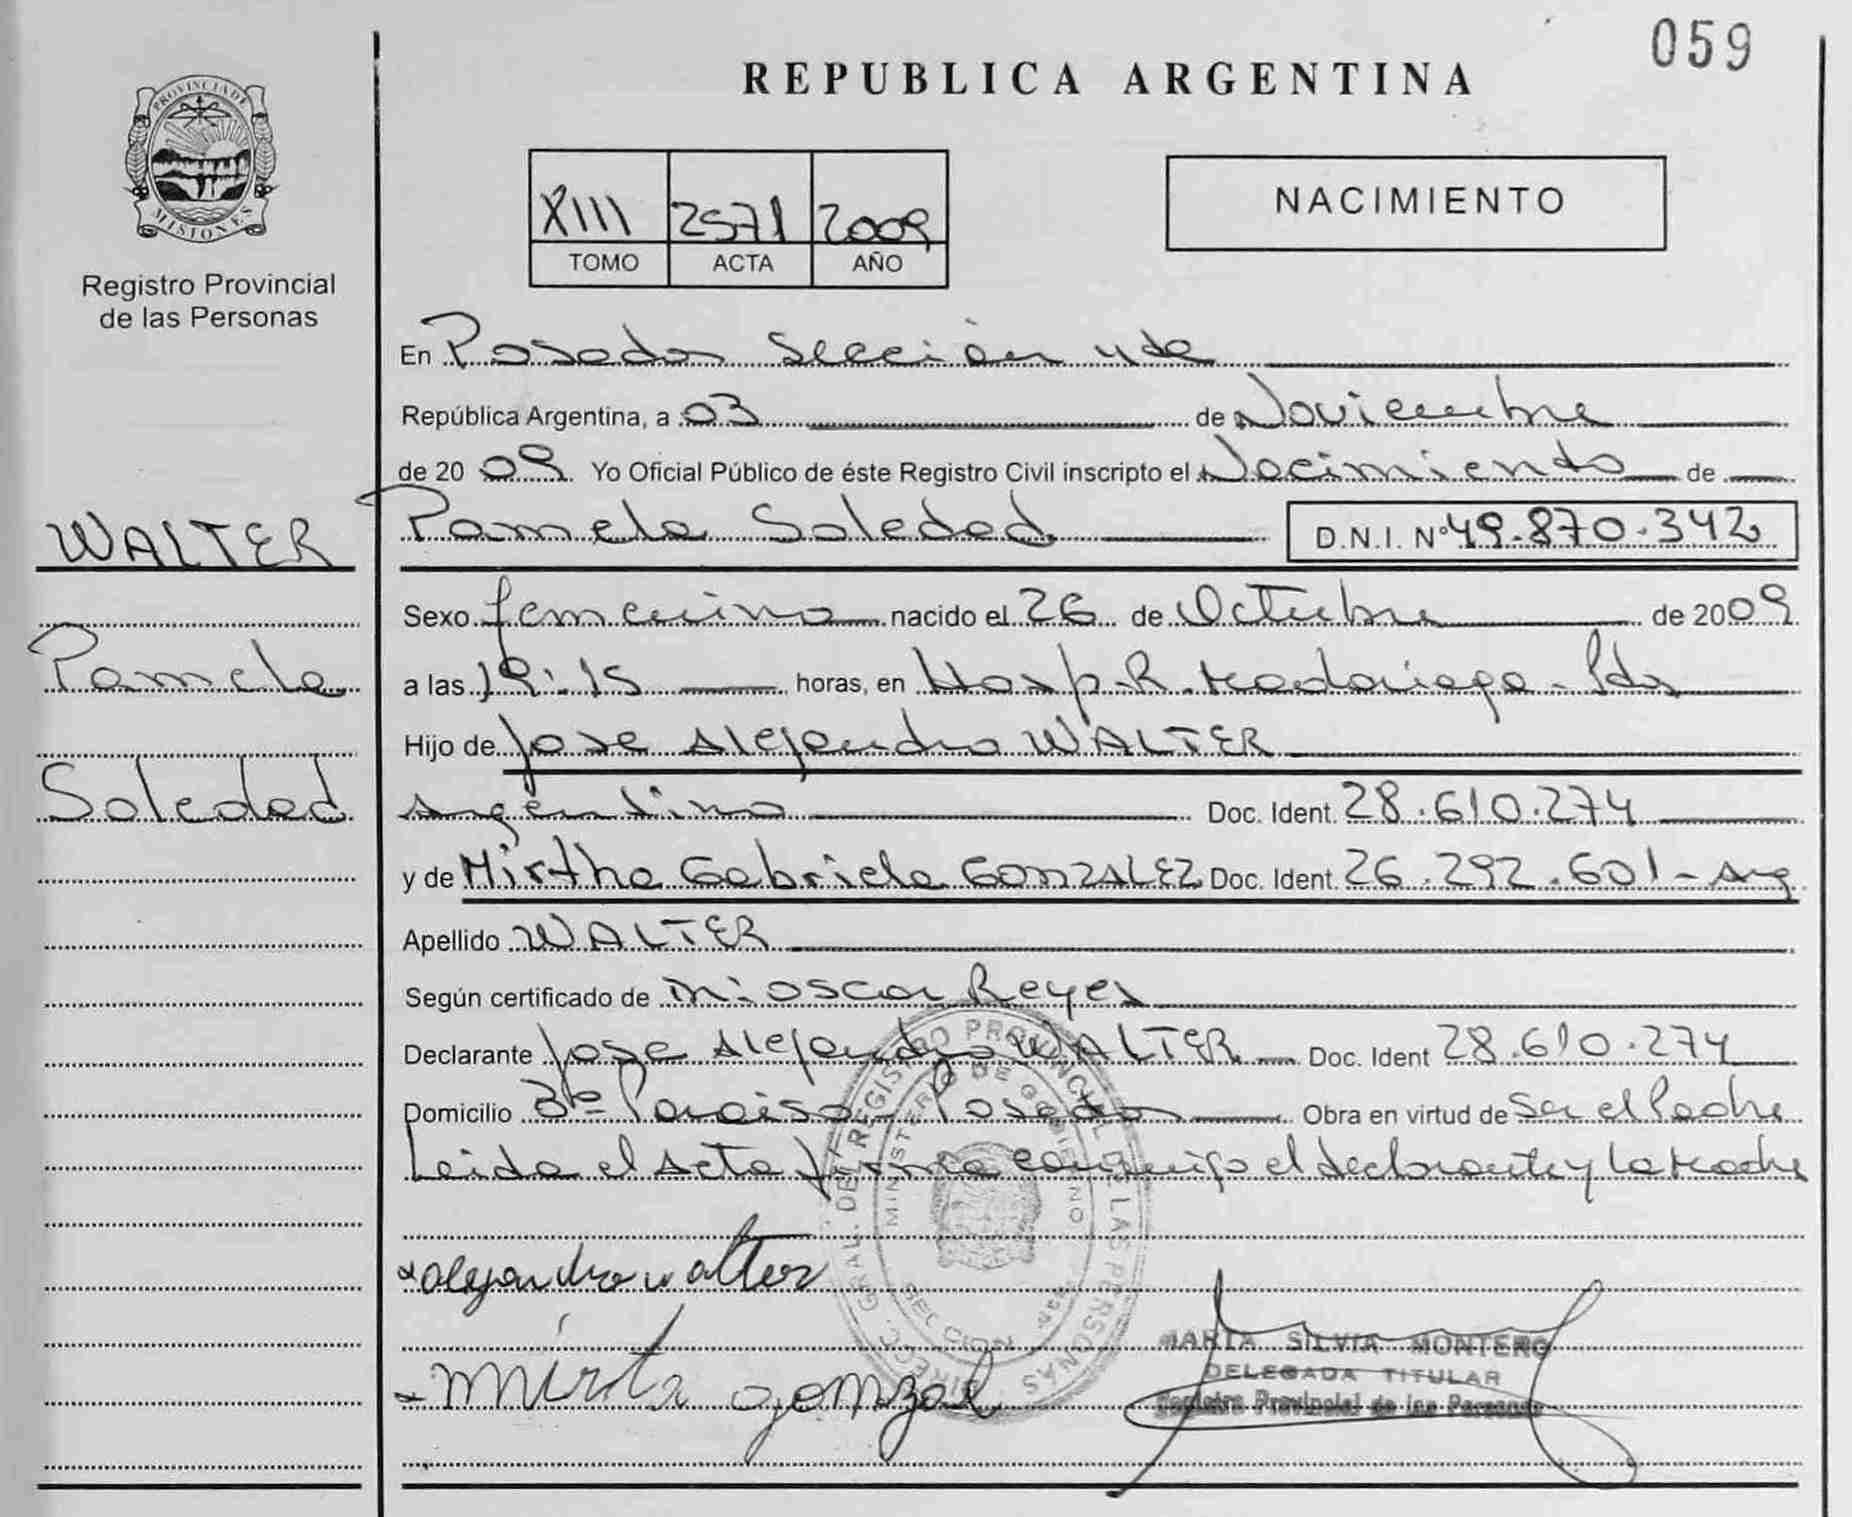 059
REPUBLICA ARGENTINA
PROVINCIA DE
MISIONES
Registro Provincial
de las Personas
XIII 2571 2009
TOMO ACTA AÑO
NACIMIENTO
En Posadas Sección 4ta
República Argentina, a 03 de Noviembre
de 2009 Yo Oficial Público de éste Registro Civil inscripto el Nacimiento de
WALTER
Pamela
Soledad
Pamela Soledad D.N.I. Nº 49.870.342
Sexo femenino nacido el 26 de Octubre de 2009
a las 19:15 horas, en Hosp. R. Madariaga - Pdas
Hijo de Jose Alejandro WALTER
Argentino Doc. Ident. 28.610.274
y de Mirtha Gabriela GONZALEZ Doc. Ident. 26.292.601 - Arg
Apellido WALTER
Según certificado de Oscar Reyes
Declarante Jose Alejandro WALTER Doc. Ident 28.610.274
Domicilio Bº Paraiso Posadas Obra en virtud de Ser el Padre
Leida el Acta firma conmigo el declarante y la Madre
DIRECC. GRAL. DEL REGISTRO PROVINCIAL DE LAS PERSONAS
MINISTERIO DE GOBIERNO
SECCION
alejandro walter
Mirta gonzal
MARTA SILVIA MONTERO
DELEGADA TITULAR
Registro Provincial de las Personas